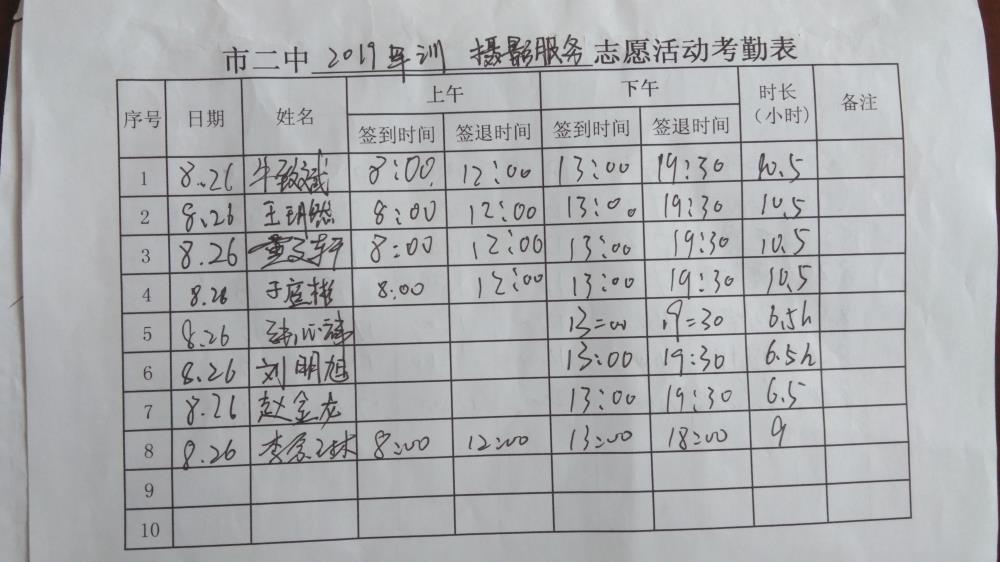 市二中 2019军训 摄影服务 志愿活动考勤表
序号 日期 姓名 上午 下午 时长（小时） 备注
签到时间 签退时间 签到时间 签退时间
1 8.26 牛致斌 8:00 12:00 13:00 19:30 10.5
2 8.26 王玥 8:00 12:00 13:00 19:30 10.5
3 8.26 黄文轩 8:00 12:00 13:00 19:30 10.5
4 8.26 于 8:00 12:00 13:00 19:30 10.5
5 8.26 13=00 19=30 6.5h
6 8.26 刘明旭 13:00 19:30 6.5h
7 8.26 赵金龙 13:00 19:30 6.5
8 8.26 李 8:00 12:00 13:00 18:00 9
9
10